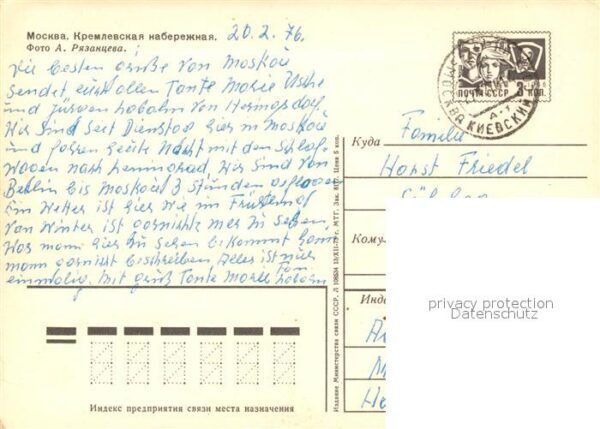 Москва. Кремлевская набережная.
Фото А. Рязанцева.
20.2.76.
Die besten Grüße von Moskau
sendet euch allen Tante Marie Uschi
und Jürgen von Hermsdorf
Wir sind seit Dienstag hier in Moskau
und fahren heute Nacht mit den Schlaf-
wagen nach Leningrad, Wir sind von
Berlin bis Moskau 3 Stunden geflogen
Ein Wetter ist hier wie im
Von Winter ist garnichts mer zu sehen.
Was mann hier zu sehen bekommt kann
mann garnicht beschreiben Alles ist hier
einmalig. Mit gruß Tante Marie
Fam
ПОЧТА СССР
3 коп.
МОСКВА КИЕВСКИЙ
Куда
Familie
Horst Friedel
Кому
Инд
Издание Министерства связи СССР. Л 106534 13/XII-73 г. МТГ. Зак. Цена 5 коп.
Индекс предприятия связи места назначения
privacy protection
Datenschutz